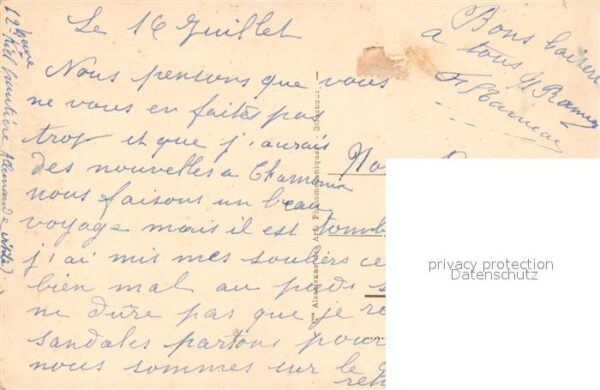 Le 16 Juillet
Nous pensons que vous
ne vous en faites pas
trop et que j'aurais
des nouvelles a Chamonix
nous faisons un beau
voyage mais il est tomb
j'ai mis mes souliers ce
bien mal au pieds s
ne dure pas que je re
sandales partons pour
nous sommes sur le
Bons baisers
a tous
Cie Alsacienne des Arts Photomécaniques - Strasbourg
privacy protection
Datenschutz